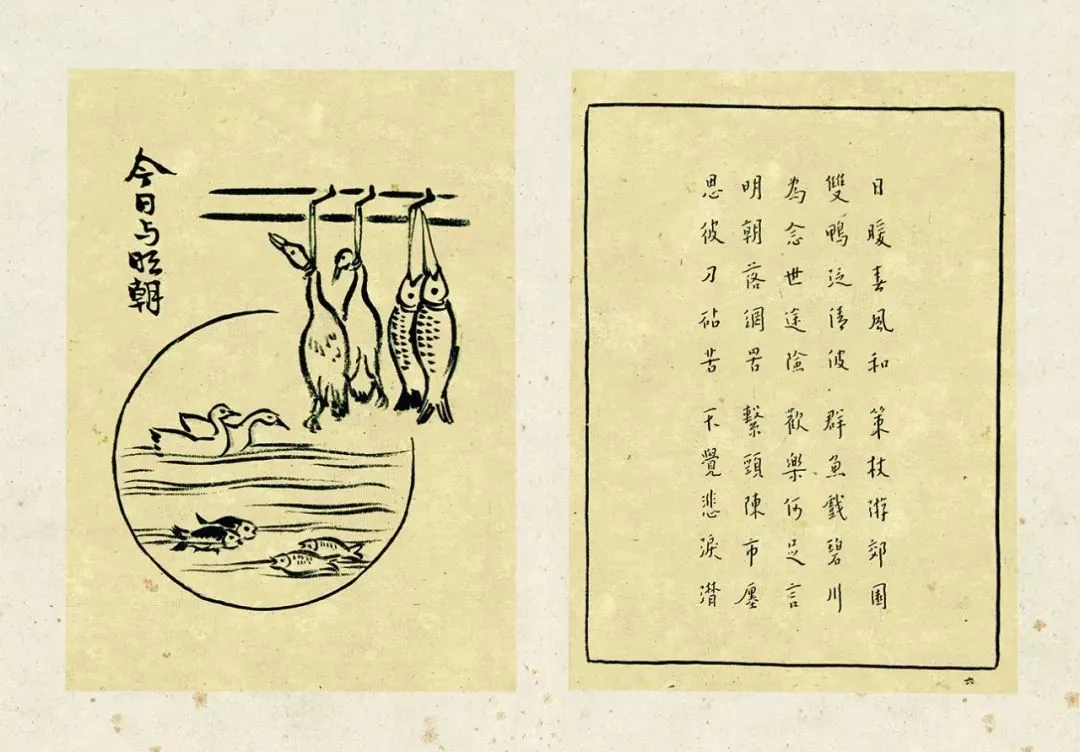 今日与明朝
日暖春風和 策杖游郊園
雙鴨泛清波 群魚戲碧川
為念世途險 歡樂何足言
明朝落網罟 繫頸陳市廛
思彼刀砧苦 不覺悲淚潸
六